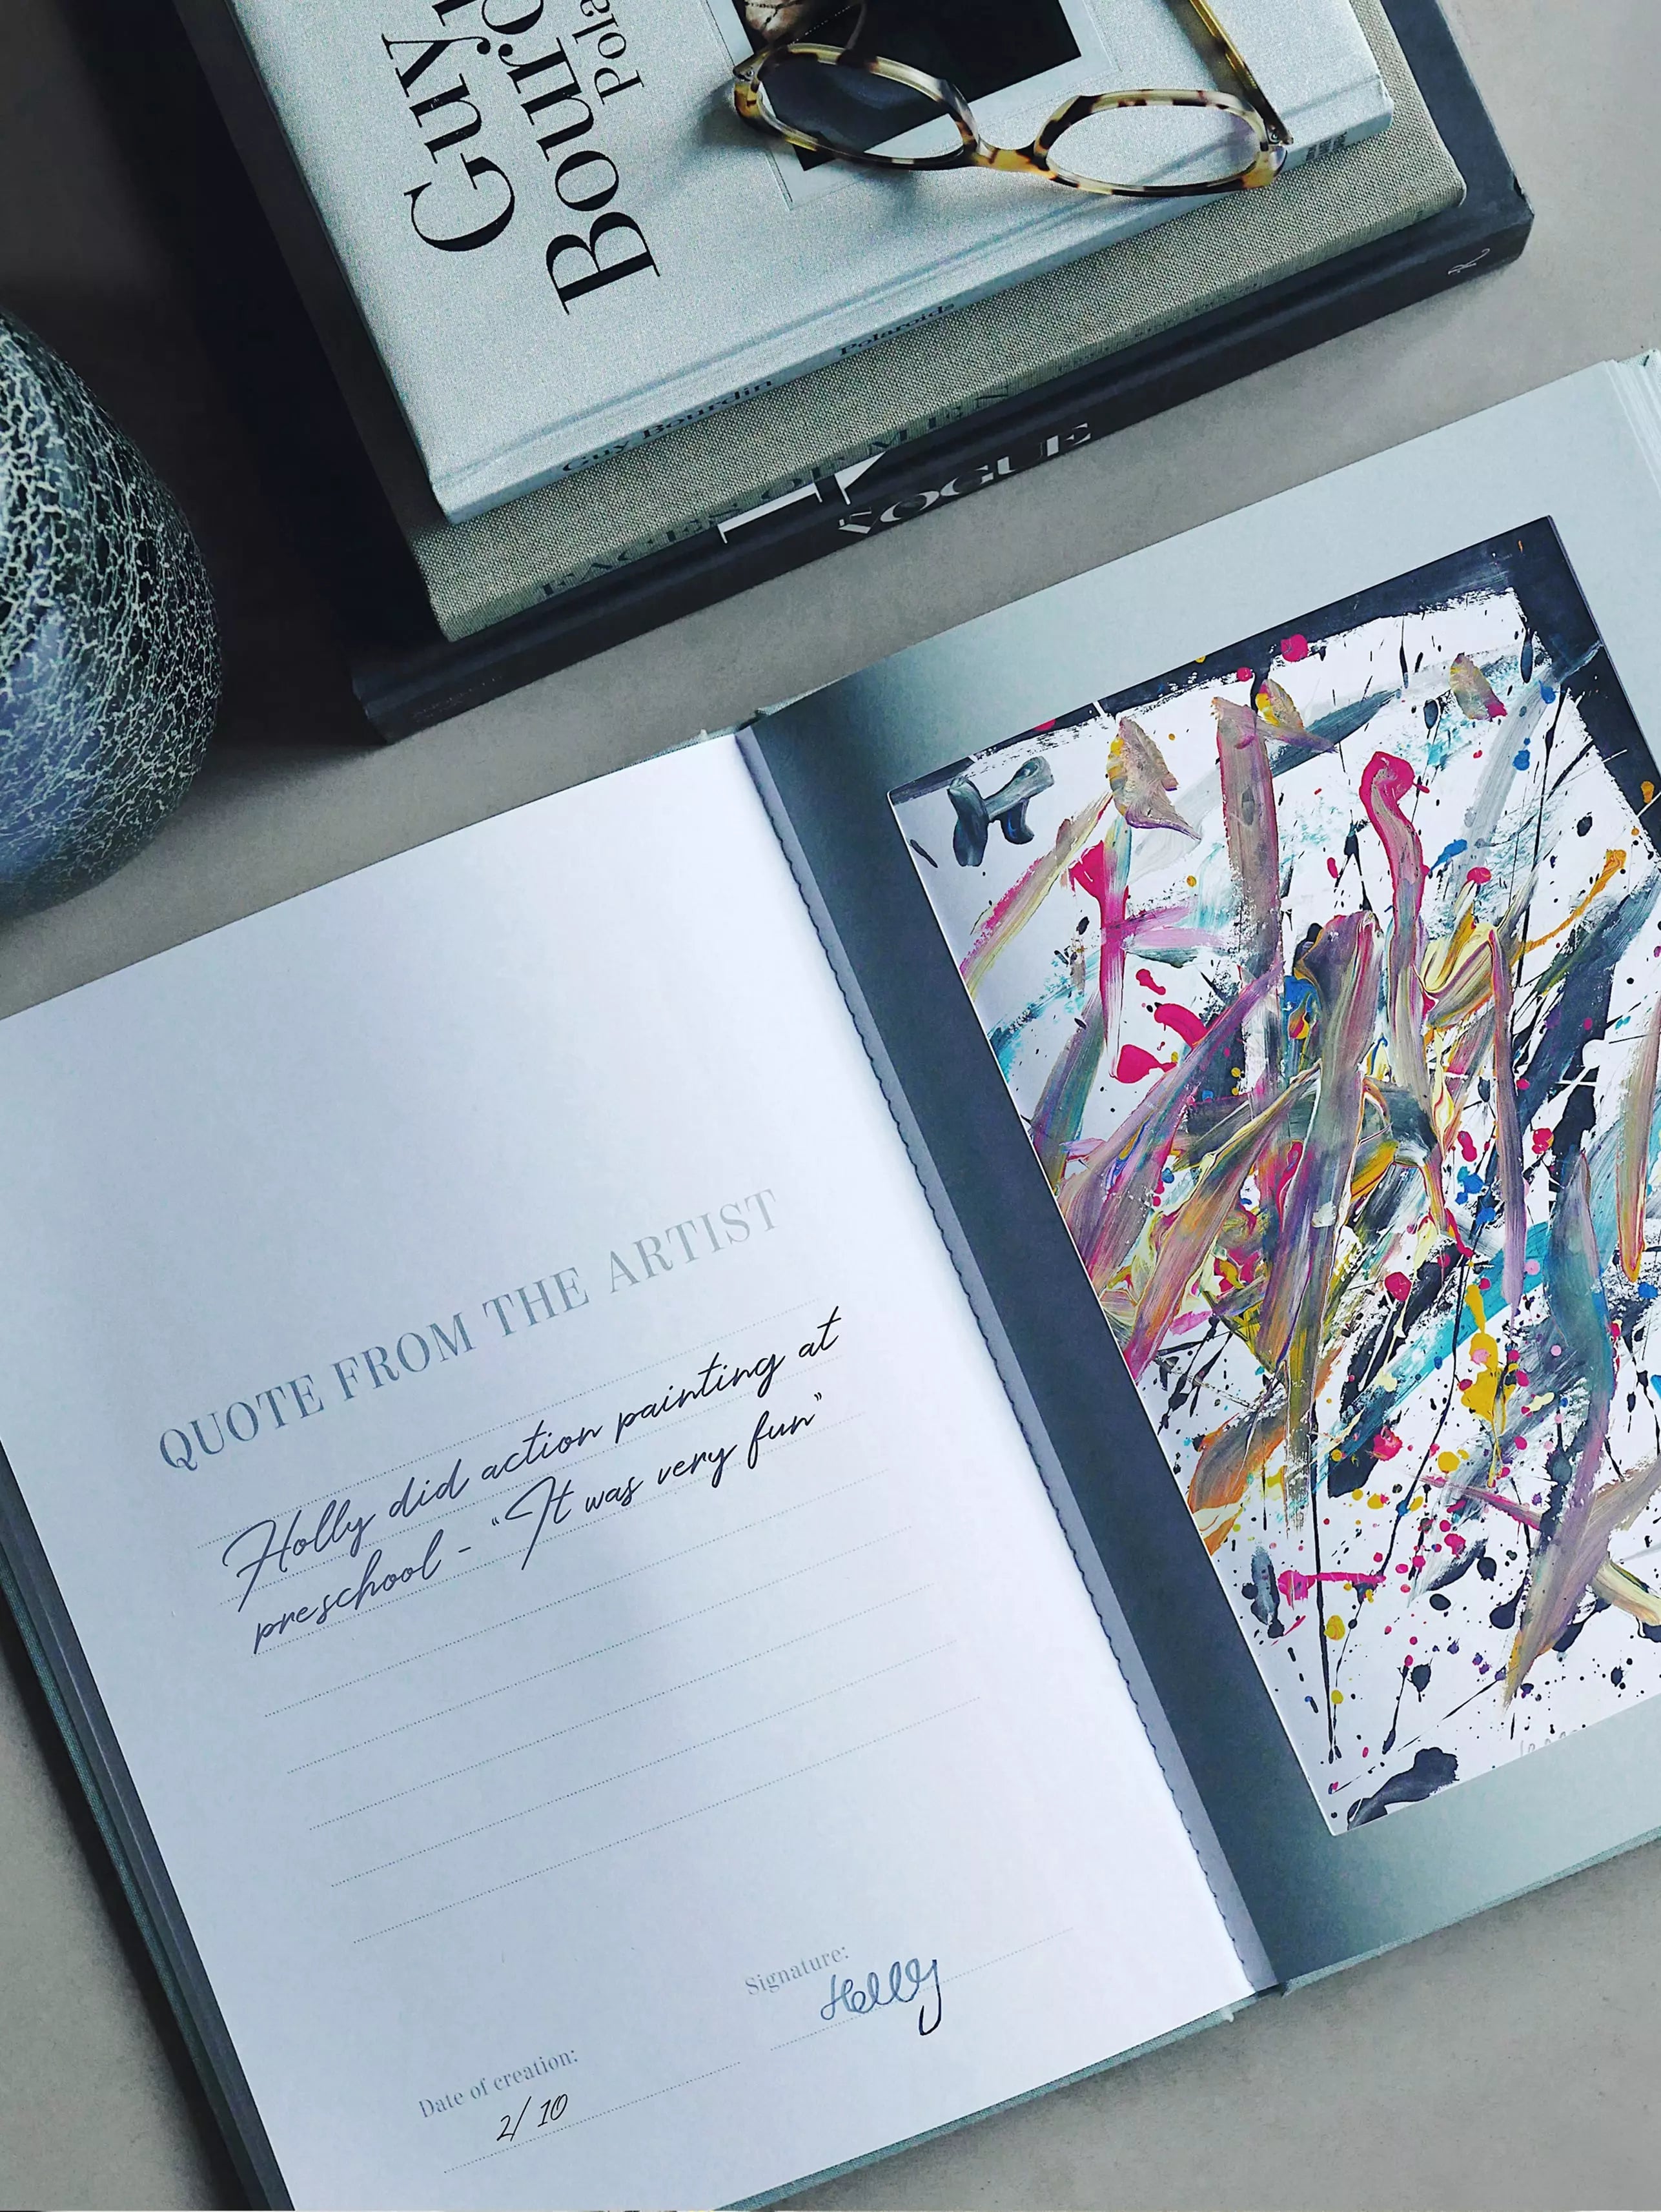 Guy
Bourd
Pola
Guy Bourdin Polaroids
FACES OF MEN
VOGUE
QUOTE FROM THE ARTIST
Holly did action painting at
preschool - "It was very fun"
Signature:
Holly
Date of creation:
2/10